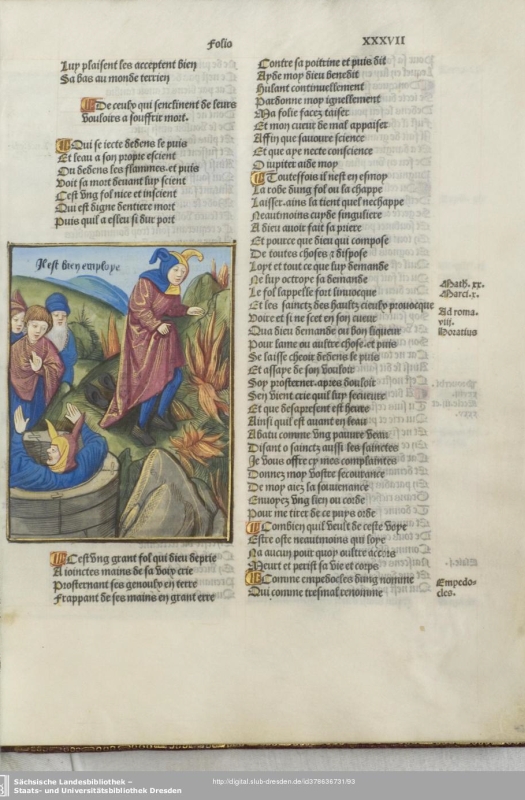 Folio
XXXVII
Luy plaisent les acceptent bien
Sa bas au monde terrien
De ceulx qui senclinent de leurs
vouloirs a souffrir mort.
Qui se iecte dedens le puis
Et leau a son propre escient
Ou dedens les flammes et puis
Voit sa mort deuant luy scient
Cest vng fol nice et inscient
Qui est digne dentiere mort
Puis quil a esleu si dur port
Il est bien employe
Cest vng grant fol qui dieu deprie
A ioinctes mains de sa voix crie
Prosternant ses genoulx en terre
Frappant de ses mains en grant erre
Contre sa poitrine et puis dit
Ayde moy dieu benedit
Hulant continuellement
Pardonne moy ignellement
Ma folie facez taiser
Et mon cueur de mal appaiser
Affin que sauoure science
Et que aye necte conscience
O iupiter aide moy
Touteffois il nest en esmoy
La robe dung fol ou la chappe
Laisser.ains la tient quel neschappe
Neautmoins cuyde singuliere
A dieu auoir fait sa priere
Et pource que dieu qui compose
De toutes choses z dispose
Loyt et tout ce que luy demande
Ne luy octroye sa demande
Le fol lappelle fort liniuocque
Et les sainctz des haultz cieulx prouocque
Voire et si ne scet en son cueur
Qua dieu demande ou bon liqueur
Pour lame ou aultre chose.et puis
Se laisse cheoir dedens le puis
Et assaye de son vouloir
Soy prosterner.apres douloir
Sen vient crie quil luy sequeure
Et que desapresent est heure
Ainsi quil est auant en leau
Abatu comme vng pauure veau
Disant o sainctz aussi les sainctes
Je vous offre cy mes complaintes
Donnez moy vostre secourance
De moy aiez la souuenance
Enuoyez vng lien ou corde
Pour me tirer de ce puys orde
Combien quil veult de ceste voye
Estre oste neautmoins qui loye
Na aucun pour quoy oultre accors
Meurt et perist sa vie et corps
Comme empedocles dung nomme
Qui comme tresmal renomme
Math. xx.
Marci.x.
Ad roma.
viii.
Horatius
Empedo-
cles.
Sächsische Landesbibliothek –
Staats- und Universitätsbibliothek Dresden
http://digital.slub-dresden.de/id378636731/93